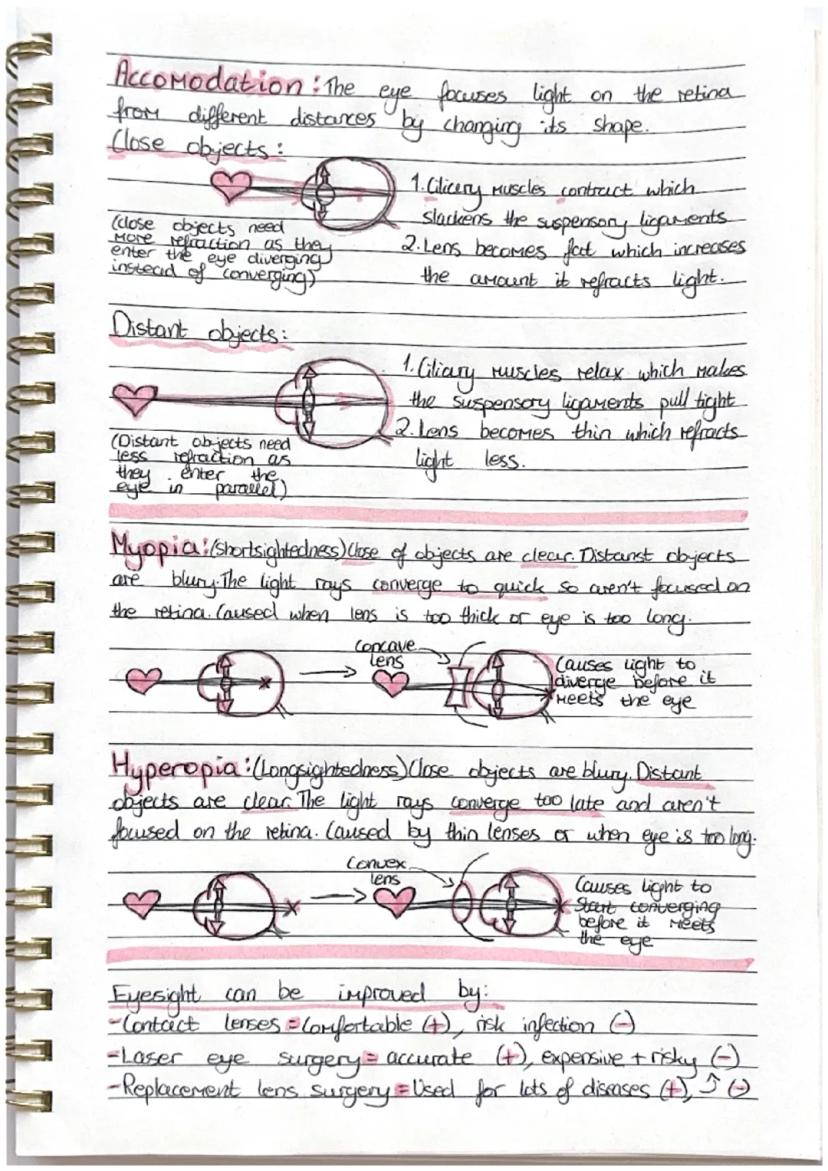 Accomodation: The eye focuses light on the retina
from different distances by changing its shape.
Close objects:
(close objects need
more refraction as they
enter the eye diverging
instead of converging)
1. Ciliary muscles contract which
slackens the suspensory ligaments
2. Lens becomes fat which increases
the amount it refracts light.
Distant objects:
(Distant objects need
less refraction as
they enter the
eye in parallel)
1. Ciliary muscles relax which makes
the suspensory ligaments pull tight
2. Lens becomes thin which refracts
light less.
Myopia: (shortsightedness) Close of objects are clear. Distanst objects
are blury. The light rays converge to quick so aren't focused on
the retina. Caused when lens is too thick or eye is too long.
concave
lens
Causes light to
diverge before it
meets the eye
Hyperopia: (Longsightedness) Close objects are blury. Distant
objects are clear. The light rays converge too late and aren't
focused on the retina. Caused by thin lenses or when eye is too long.
Convex
lens
Causes light to
start converging
before it meets
the eye
Eyesight can be improved by:
-Contact lenses = Comfortable (+), risk infection (-)
-Laser eye surgery = accurate (+), expensive + risky (-)
-Replacement lens surgery = Used for lots of diseases (+), ↑ (-)